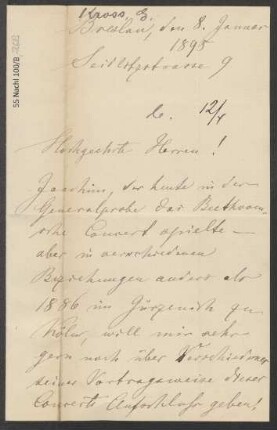 Kross, E.
Breslau, den 8. Januar
1895
Seidlitzstrasse 9
b. 12/I
Hochgeehrte Herren!
Joachim, der heute in der
Generalprobe das Beethoven-
sche Concert spielte –
aber in verschiedenen
Beziehungen anders als
1886 im Gürzenich zu
Köln, will mir sehr
gern noch über Verschiedenes
seiner Vortragsweise dieses
Concerts Aufschluss geben!
55 Nachl 100/B